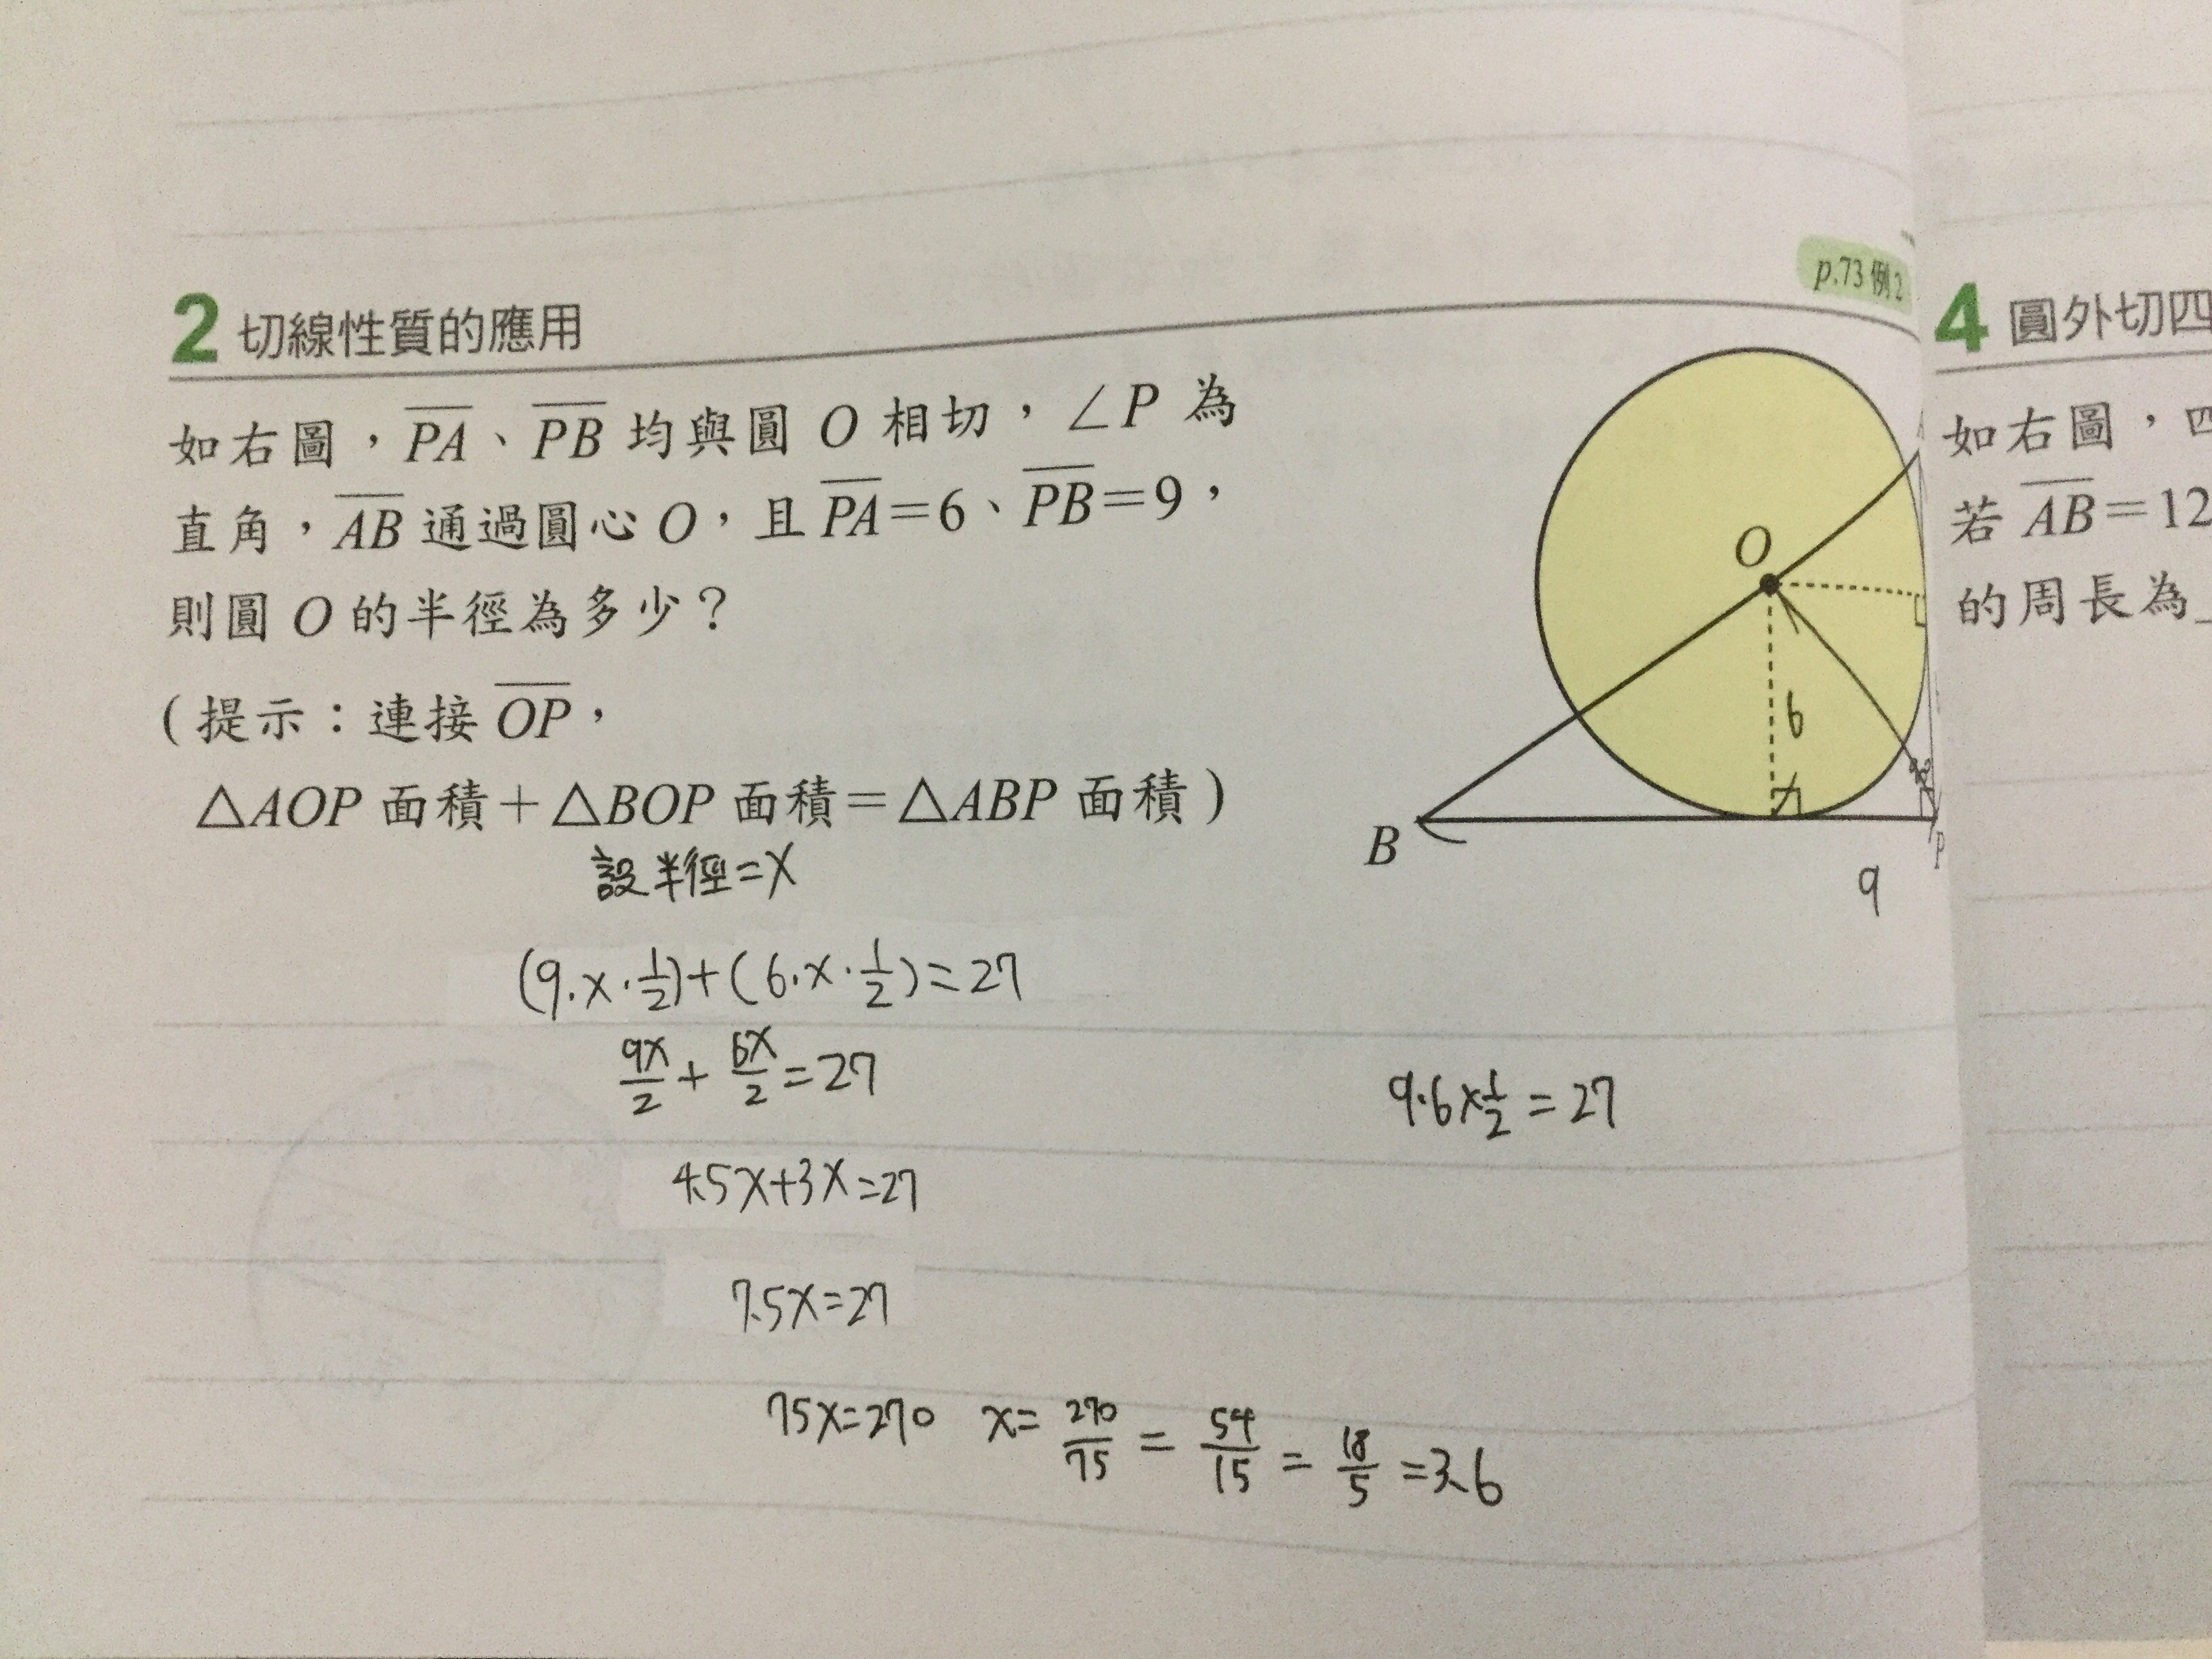 p.73 例2
2 切線性質的應用
如右圖，PA、PB 均與圓 O 相切，∠P 為
直角，AB 通過圓心 O，且 PA=6、PB=9，
則圓 O 的半徑為多少？
(提示：連接 OP，
△AOP 面積+△BOP 面積=△ABP 面積)
O
6
B
P
9
設半徑=x
(9·x·1/2)+(6·x·1/2)=27
9x/2 + 6x/2 =27
9·6×1/2=27
4.5x+3x=27
7.5x=27
75x=270 x= 270/75 = 54/15 = 18/5 =3.6
4 圓外切四
如右圖，四
若 AB=12
的周長為